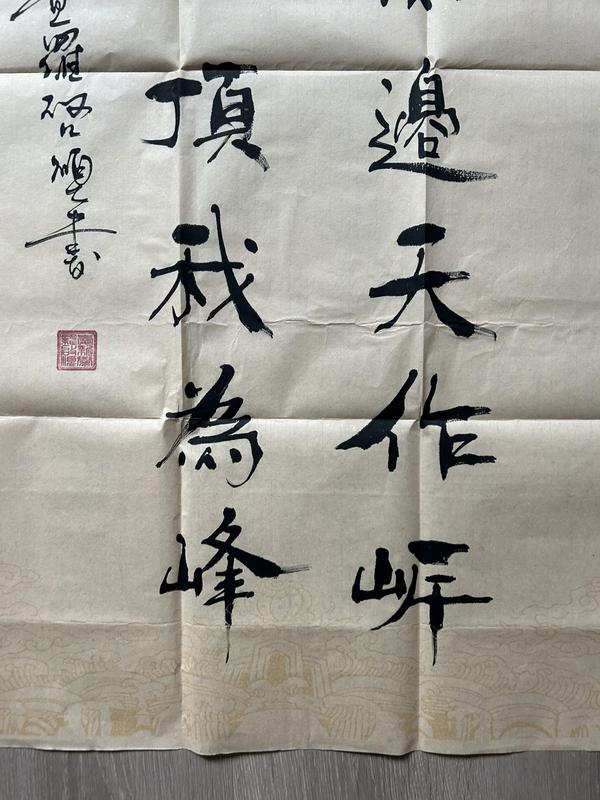 邊天作岸
頂我為峰
羅啓書